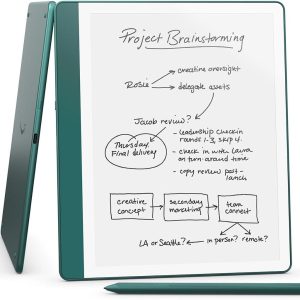 Project Brainstorming
Rosie
creative oversight
delegate assets
Jacob review?
Thursday,
Final delivery
- leadership check in
rounds 1-3, skip 4.
- check in with Laura
on turn around time
- copy review post-
launch
creative
concept
secondary
marketing
team
connect
LA or Seattle?
in person?
remote?